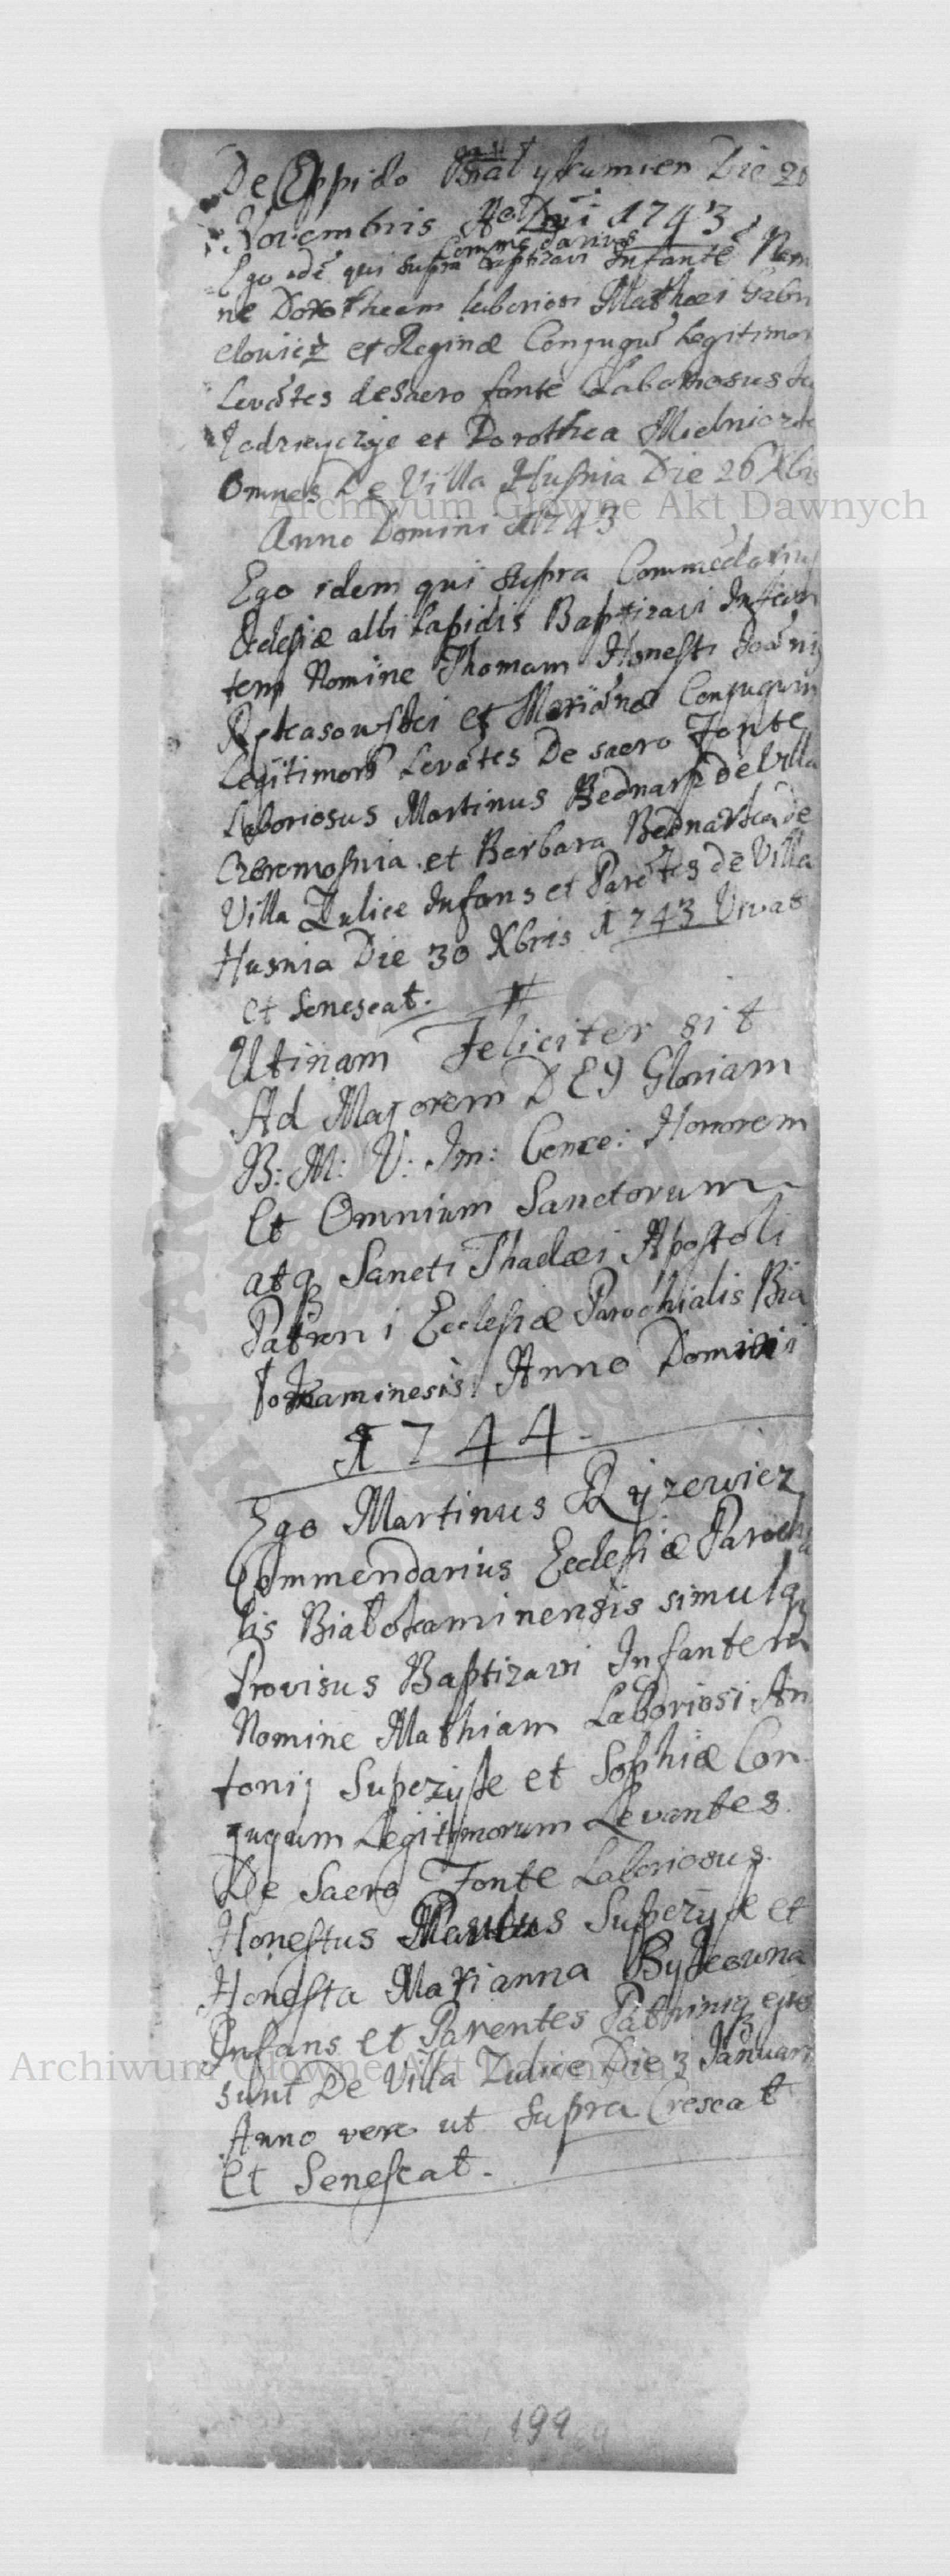 De Oppido Białykamien Die 20
Novembris Ao Dni 1743
Commedarius
Ego idē qui supra Baptizavi Infantē Nomi
ne Dorotheam laboriosi Mathæi Gabri
elowicz et Reginæ Conjugū Legitimor
Levātes de sacro fonte Laboriosus
et Dorothea Mielniczka
Omnes De Villa Husnia Die 26 Xbris
Anno Domini 1743
Ego idem qui supra Commēdarius
Eclesiæ albi Lapidis Baptizavi Infan
tem Nomine Thomam Honesti Joānis
et Mariānæ Conjugum
Legitimorū Levātes De sacro Fonte
Laboriosus Martinus Bednarz de Villa
Czeremosnia et Barbara Bednarka de
Villa Zulice Infans et Parētes de Villa
Husnia Die 30 Xbris 1743 Vivat
et Senescat.
Utinam Feliciter sit
Ad Majorem DEI Gloriam
B: M: V: Im: Conce: Honorem
Et Omnium Sanctorum
atq Sancti Thadæi Apostoli
Patroni Ecclesiæ Parochialis Bia
łokaminesis Anno Domini
1744.
Ego Martinus Ryzewicz
Commendarius Ecclesiæ Parochia
lis Białokaminensis simulq
Provisus Baptizavi Infantem
Nomine Mathiam Laboriosi An
tonij Supczyk et Sophiæ Con
jugum Legitimorum Levantes
De Sacro Fonte Laboriosus
Honestus Paulus Supczyk et
Honesta Marianna Bykowna
Infans et Parentes Patriniq ejus
sunt De Villa Zulice Die 3 Januarij
Anno vero ut Supra Crescat
Et Senescat.
199
69
Archiwum Główne Akt Dawnych
Archiwum Główne Akt Dawnych